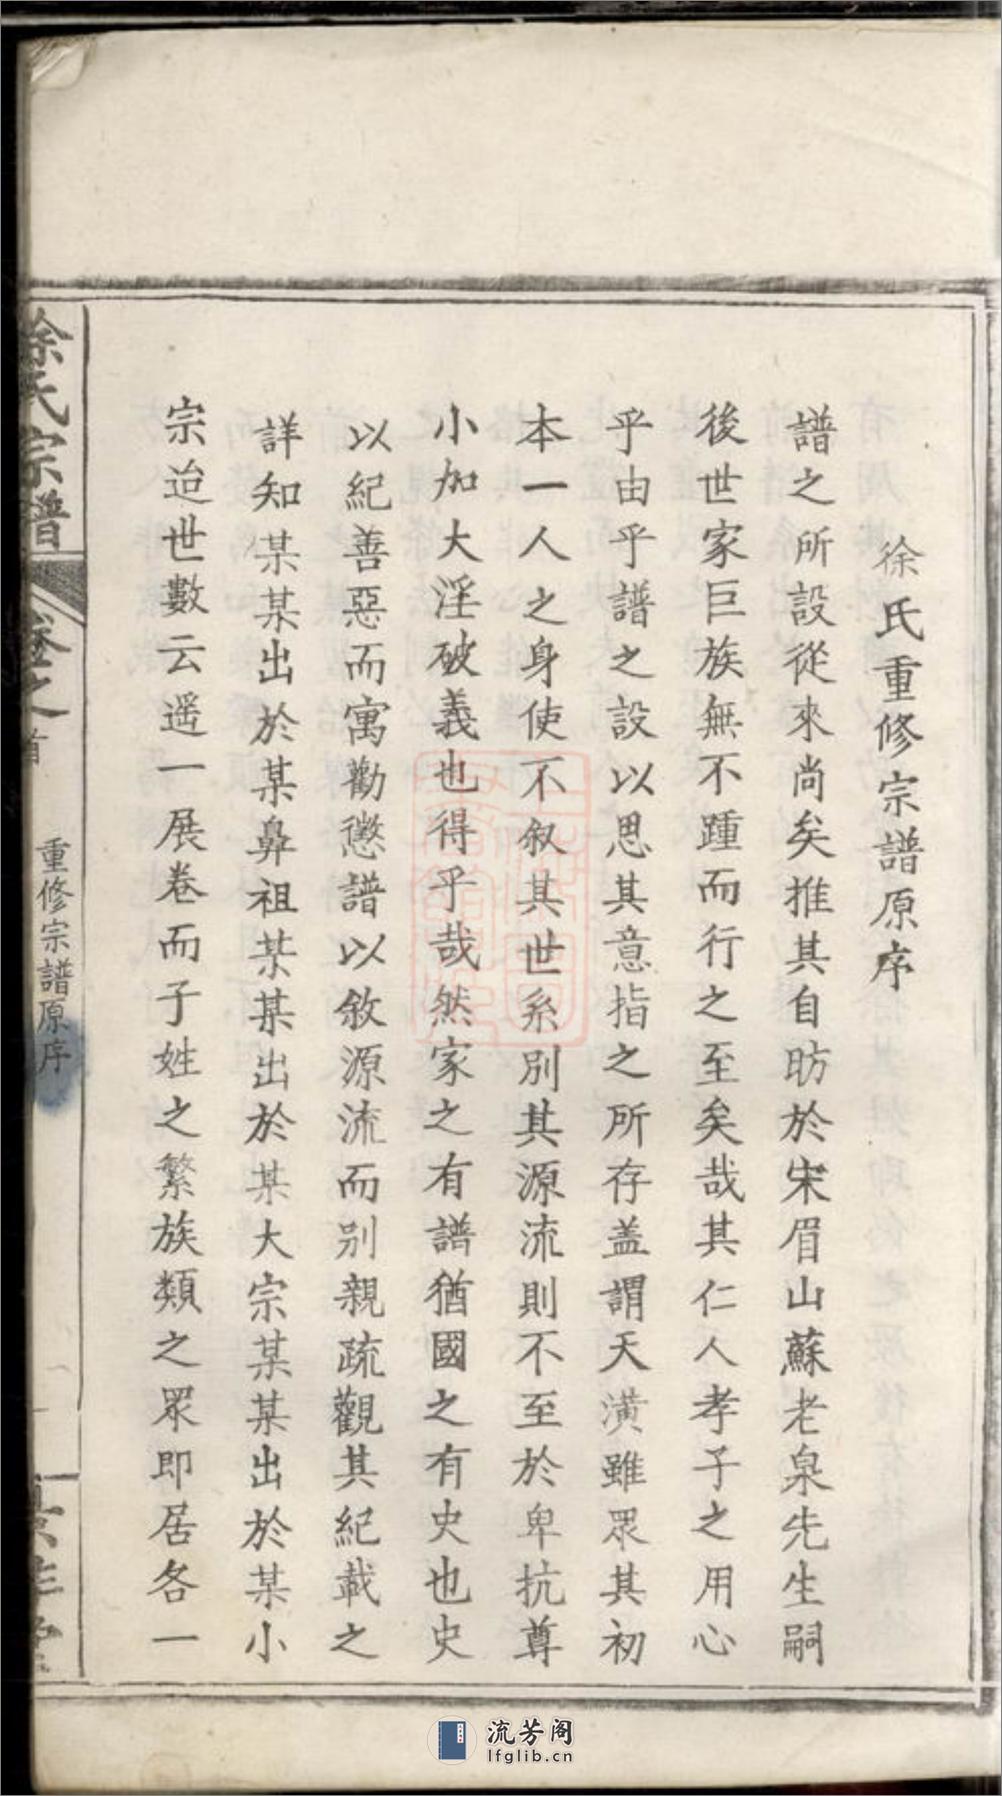 徐氏重修宗譜原序
譜之所設從來尚矣推其自昉於宋眉山蘇老泉先生嗣
後世家巨族無不踵而行之至矣哉其仁人孝子之用心
乎由乎譜之設以思其意指之所存盖謂天潢雖眾其初
本一人之身使不叙其世系別其源流則不至於卑抗尊
小加大淫破義也得乎哉然家之有譜猶國之有史也史
以紀善惡而寓勸懲譜以敘源流而別親疏觀其紀載之
詳知某某出於某鼻祖某某出於某大宗某某出於某小
宗迨世數云遥一展卷而子姓之繁族類之眾即居各一
徐氏宗譜
卷之首
重修宗譜原序
流芳阁
lfglib.cn